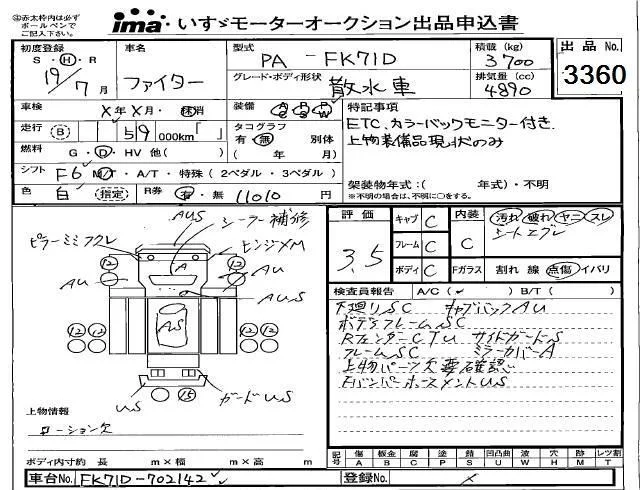 ◎赤太枠内は必ず
ボールペンで
ご記入下さい。
ima いすゞモーターオークション出品申込書
初度登録
S・H・R
19/7月
車名
ファイター
型式
PA - FK71D
グレード・ボディ形状
散水車
積載 (kg)
3700
排気量 (cc)
4890
出品 No.
3360
車検
X年X月・抹消
装備 A/C P/S P/W
走行 (B) 59 000km「 」
タコグラフ
有・無 別体
( 年 月)
燃料
G・D・HV 他( )
シフト
F6 M/T・A/T・特殊(2ペダル・3ペダル)
色
白 (指定)
R券
有・無 11010 円
特記事項
ETC、カラーバックモニター付き.
上物装備品現状のみ
架装物年式:( 年式)・不明
※不明の場合は、不明に○をする。
評価
3.5
キャブ C
フレーム C
ボディ C
内装
C
Fガラス
汚れ 破れ ヤニ スレ
シートエグレ
割れ 線 点傷 イバリ
検査員報告 A/C(✓) B/T( )
下廻りSC キャブバックAU
ボデーフレームSC
RフェンダーCTU サイドガードS
フレームSC ミラーカバーA
上物パーツ欠要確認
FバンパーホースメントUS
AUS
シーラー補修
ピラーミミフクレ
ヒンジXM
12
12
A
AU
AU
AUS
12
12
AS
US
15
ガードUS
上物情報
ローション欠
ボディ内寸約 長 m×幅 m×高 m
記号
傷 A
板金 B
腐 C
塗 P
錆 S
凹凸曲 U
波 W
穴 H
跡 M
レツ割 T
車台No. FK71D-702142
登録No. X